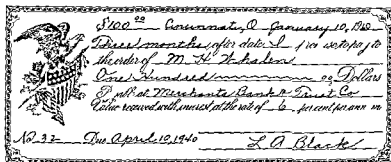 $100 00 Cincinnati, O January 10, 1940
Three months after date I promise to pay to
the order of M. H. Whalen
One Hundred 00 Dollars
Payable at Merchants Bank & Trust Co
Value received with interest at the rate of 6 per cent per annum
No. 32 Due April 10, 1940 L A Black